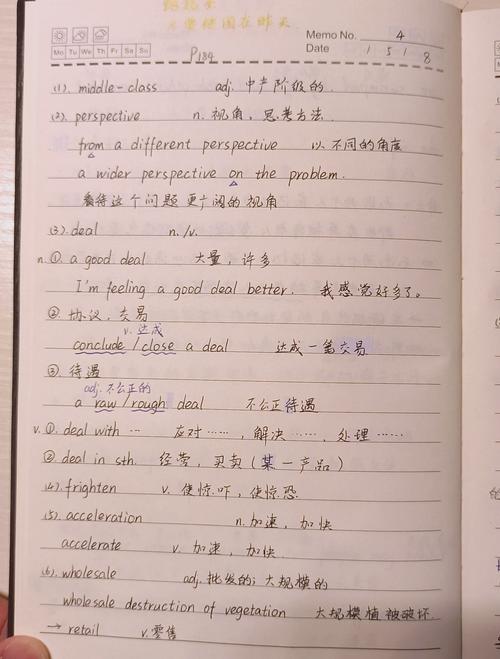 Memo No. 4
Mo Tu We Th Fr Sa Su
Date 1 5 1 8
P184
(1). middle-class adj. 中产阶级的.
(2). perspective n. 视角，思考方法.
from a different perspective 以不同的角度
a wider perspective on the problem.
看待这个问题更广阔的视角
(3). deal n./v.
n. ①. a good deal 大量，许多
I'm feeling a good deal better. 我感觉好多了。
②. 协议，交易
v. 达成
conclude / close a deal 达成一笔交易
③. 待遇
adj. 不公正的
a raw / rough deal 不公正待遇
v. ①. deal with … 应对……，解决……，处理……
② deal in sth. 经营，买卖（某一产品）
(4). frighten v. 使惊吓，使惊恐.
(5). acceleration n. 加速，加快
accelerate v. 加速，加快.
(6). wholesale adj. 批发的；大规模的
wholesale destruction of vegetation 大规模植被破坏.
→ retail v. 零售